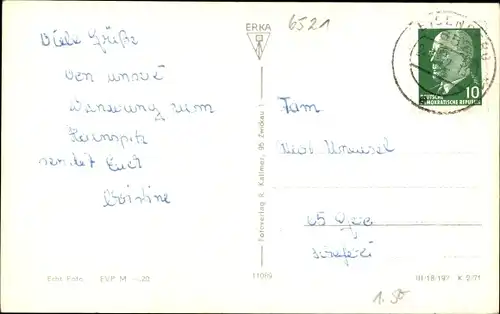 ERKA
6521
Viele Grüße
von unserer
Wanderung zum
sendet Euch
Christine
Fam.
65 Gera
EISENBERG
10
DEUTSCHE
DEMOKRATISCHE REPUBLIK
Fotoverlag R. Kallmer, 95 Zwickau 1
Echt Foto EVP M -.20
11089
III/18/197 K 2/71
1.50